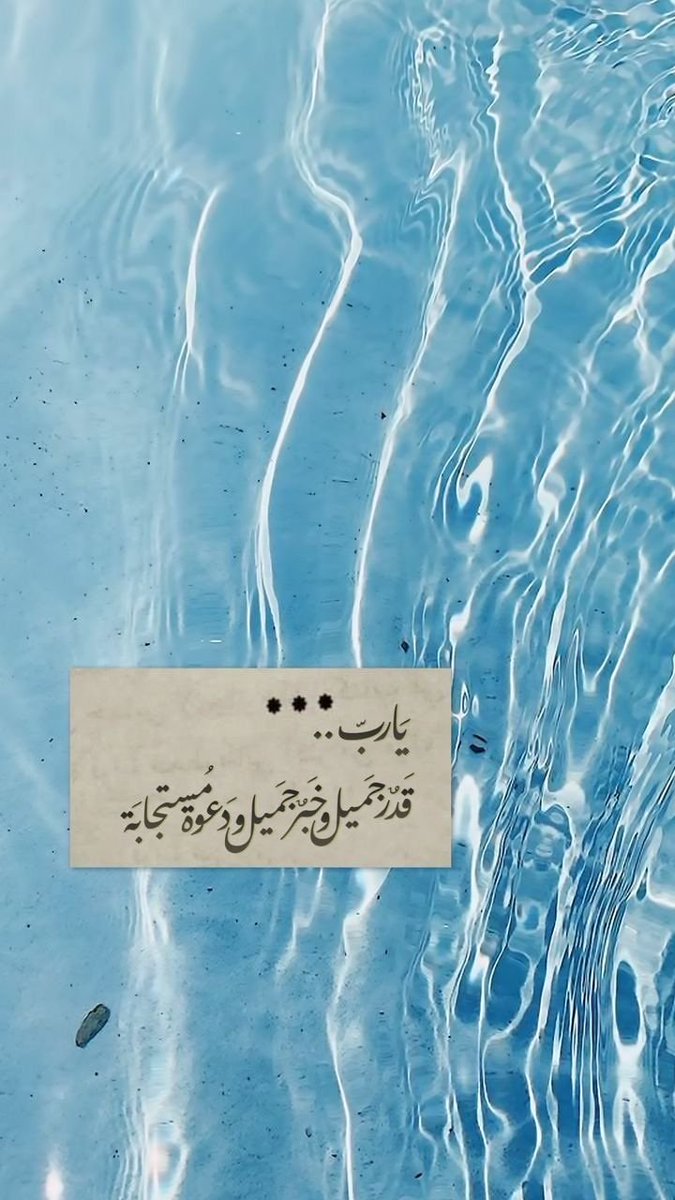 يَاربّ ..
قَدرٌ جَميل وخَبرٌ جَميل ودَعوة مُستجابَة